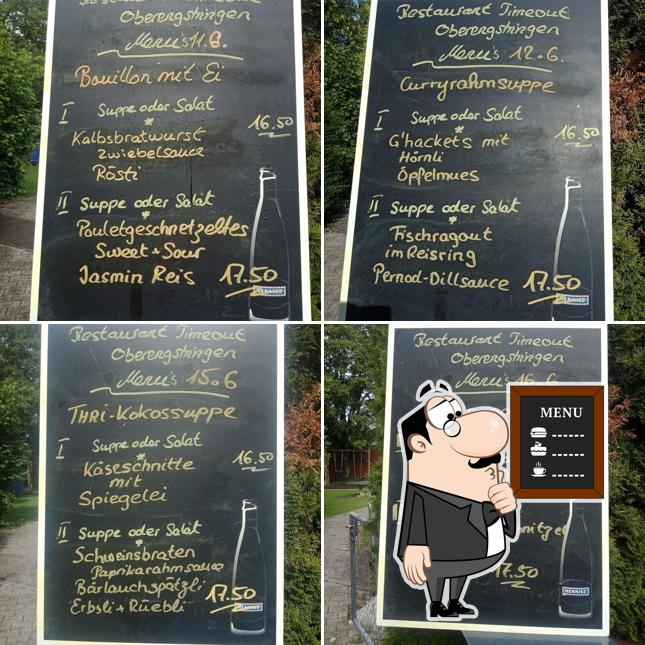 Restaurant Timeout
Oberengstringen
Menu's 11.6.
Bouillon mit Ei
I Suppe oder Salat
*
Kalbsbratwurst 16.50
Zwiebelsauce
Rösti
II Suppe oder Salat
*
Pouletgeschnetzeltes
Sweet + Sour
Jasmin Reis 17.50
HENNIEZ
Restaurant Timeout
Oberengstringen
Menu's 12.6.
Curryrahmsuppe
I Suppe oder Salat
*
G'hackets mit 16.50
Hörnli
Öpfelmues
II Suppe oder Salat
*
Fischragout
im Reisring
Pernod-Dillsauce 17.50
HENNIEZ
Restaurant Timeout
Oberengstringen
Menu's 15.6
THAI-Kokossuppe
I Suppe oder Salat
*
Käseschnitte 16.50
mit
Spiegelei
II Suppe oder Salat
*
Schweinsbraten
Paprikarahmsauce
Bärlauchspätzli
Erbsli + Rüebli 17.50
HENNIEZ
Restaurant Timeout
Oberengstringen
Menu's 16.6
MENU
17.50
HENNIEZ